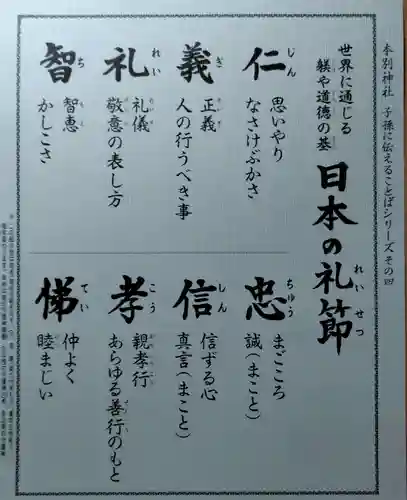 本別神社 子孫に伝えることばシリーズ その四
世界に通じる
躾や道徳の基
日本の礼節
れいせつ
仁
じん
思いやり
なさけぶかさ
義
ぎ
正義
人の行うべき事
礼
れい
礼儀
敬意の表し方
智
ち
智恵
かしこさ
忠
ちゅう
まごころ
誠(まこと)
信
しん
信ずる心
真言(まこと)
孝
こう
親孝行
あらゆる善行のもと
悌
てい
仲よく
睦まじい